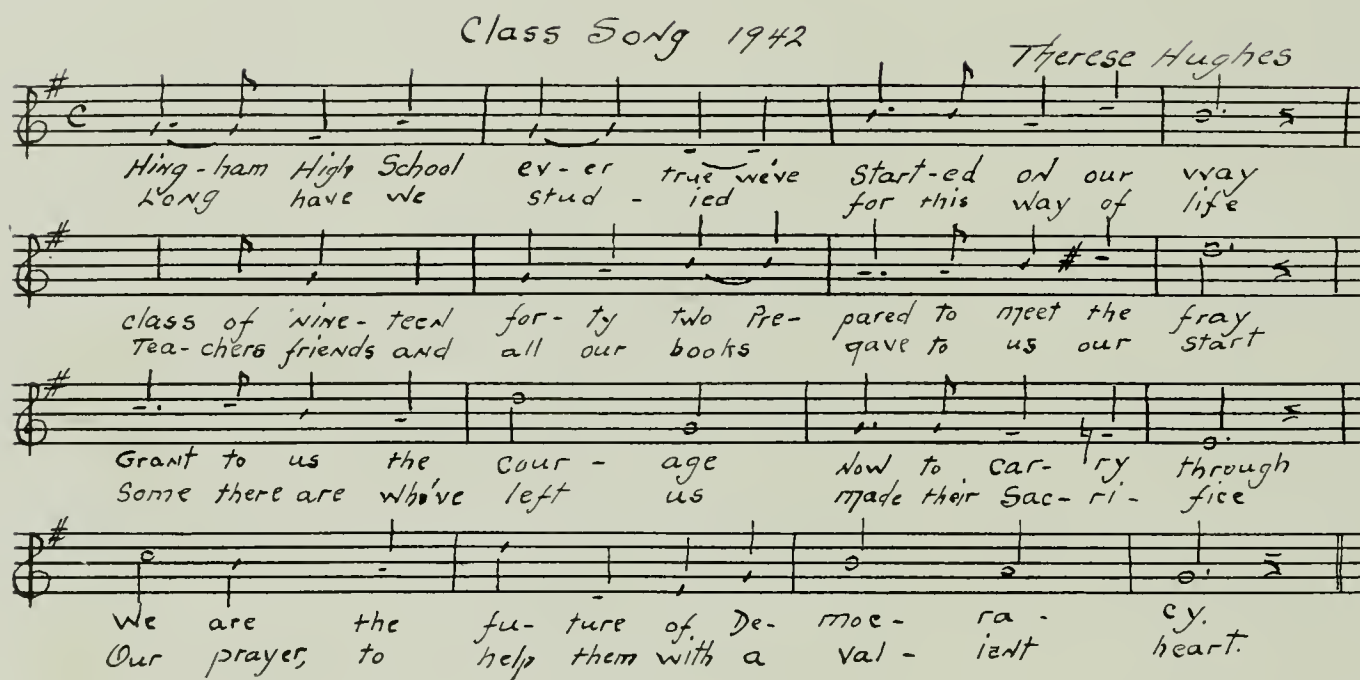 Class Song 1942
Therese Hughes
Hing-ham High School ev-er true we've Start-ed on our way
Long have we stud-ied for this way of life
class of Nine-teen for-ty two Pre-pared to meet the fray
Tea-chers friends and all our books gave to us our start
Grant to us the cour-age Now to car-ry through
Some there are who've left us made their Sac-ri-fice
We are the fu-ture of De-moc-ra-cy.
Our prayer, to help them with a val-ient heart.